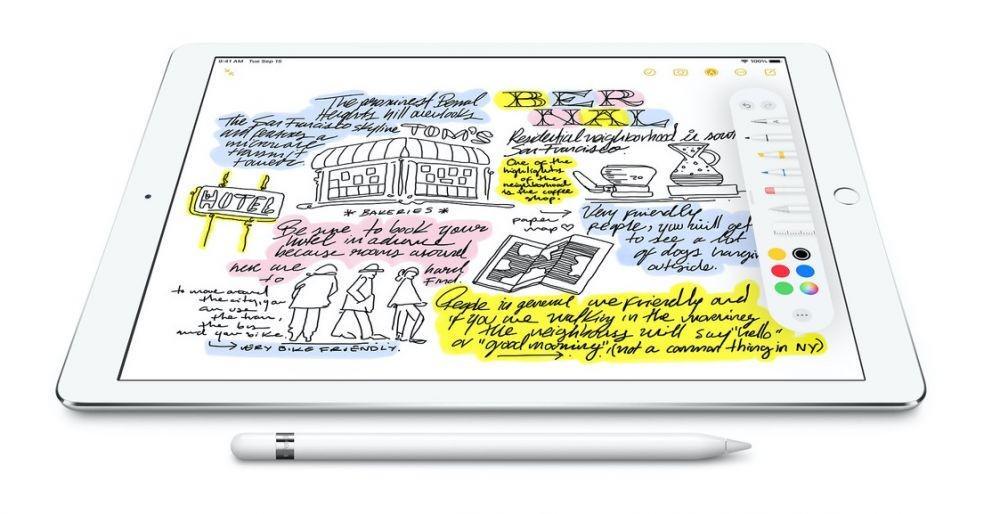 9:41 AM Tue Sep 15
100%
The prominent Bernal
Heights hill overlooks
The San Francisco skyline
and features a
microwave
transmit
tower.
BER
NAL
TOM'S
Residential neighborhood is sout
San Francisco.
One of the
highlights
of the
neighborhood
is the coffee
shop.
HOTEL
* BAKERIES *
Be sure to book your
hotel in advance
because rooms around
here are hard
to find.
paper
map
Very friendly
people, you will get
to see a lot
of dogs hanging
outside.
to move around
the city, you
can use
the train,
the bus
and your bike.
VERY BIKE FRIENDLY.
People in general are friendly and
if you are walking in the morning
the neighbours will say "hello"
or "good morning". (not a common thing in NY)